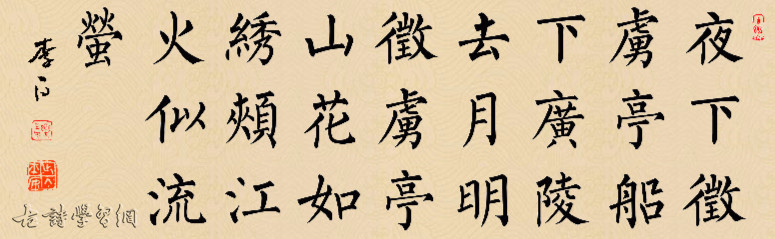 夜下徵
虜亭船
下廣陵
去月明
徵虜亭
山花如
綉頰江
火似流
螢
李白
古詩學習網